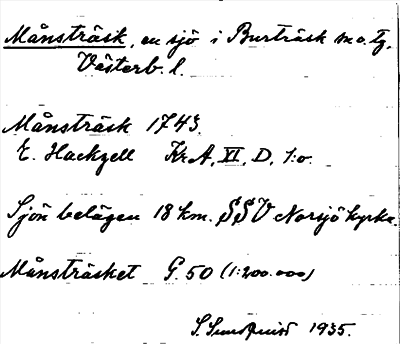 Månsträsk, en sjö i Burträsk sn o. tg.
Västerb. l.
Månsträsk 1743.
E. Hackzell Kr A, XI, D, 1:o.
Sjön belägen 18 km. SSV Norsjö kyrka.
Månsträsket G. 50 (1:200.000)
S. Sundqvist 1935.